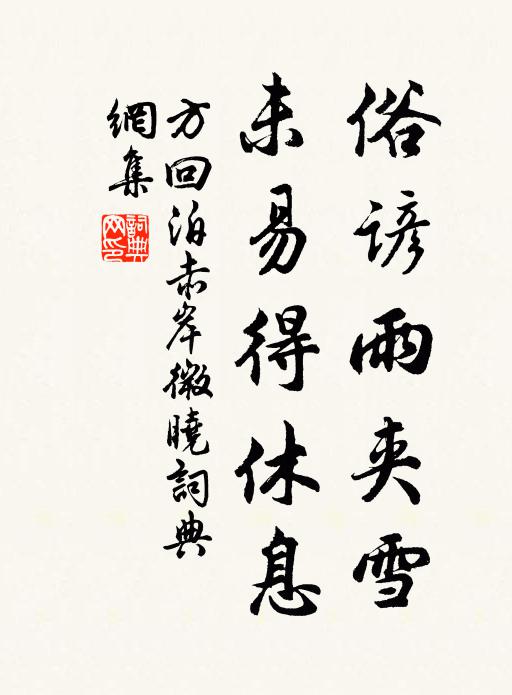 俗諺雨夾雪
未易得休息
方回泊赤岸微曉詞典
網集
詞典網印